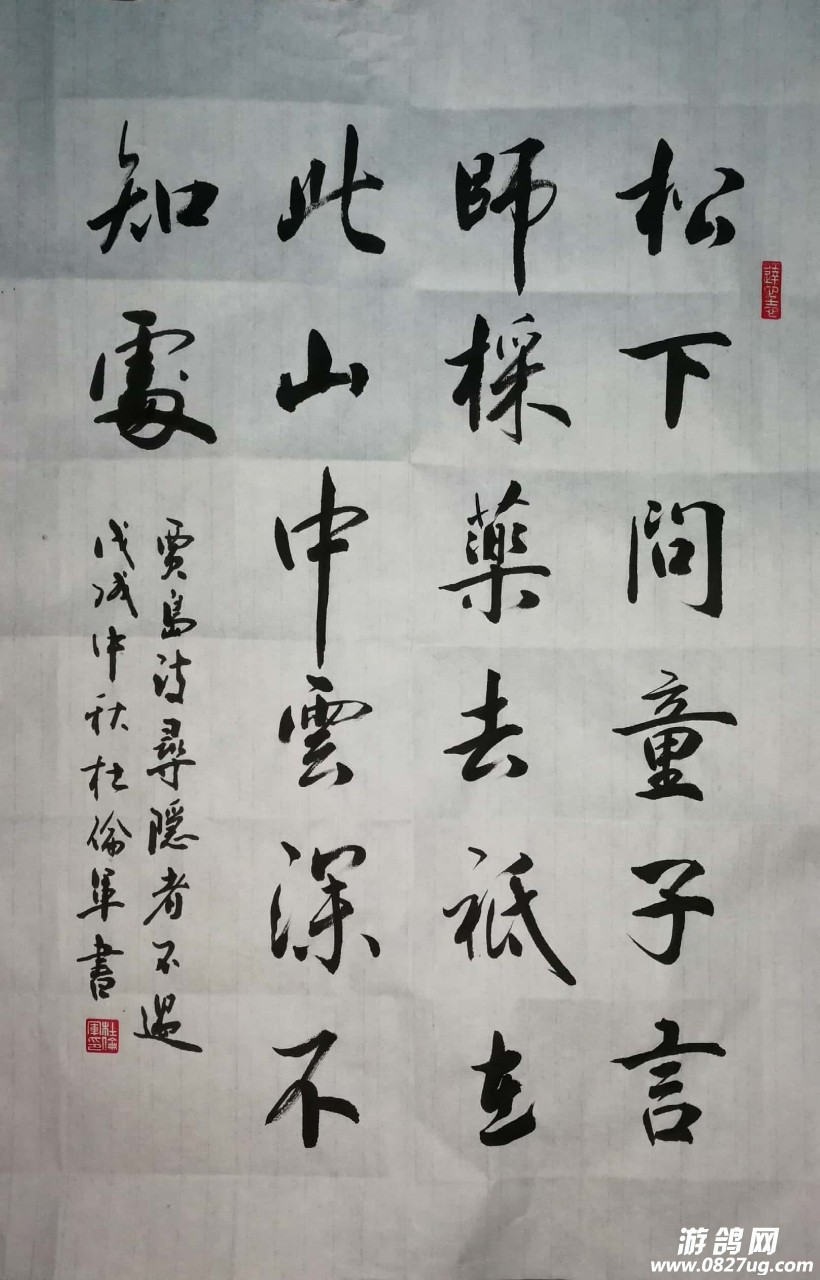 松下問童子言
師採薬去祗在
此山中雲深不
知處
賈島诗尋隱者不遇
戊戌中秋杜倫軍書
杜倫軍印
游鸽网
www.0827ug.com